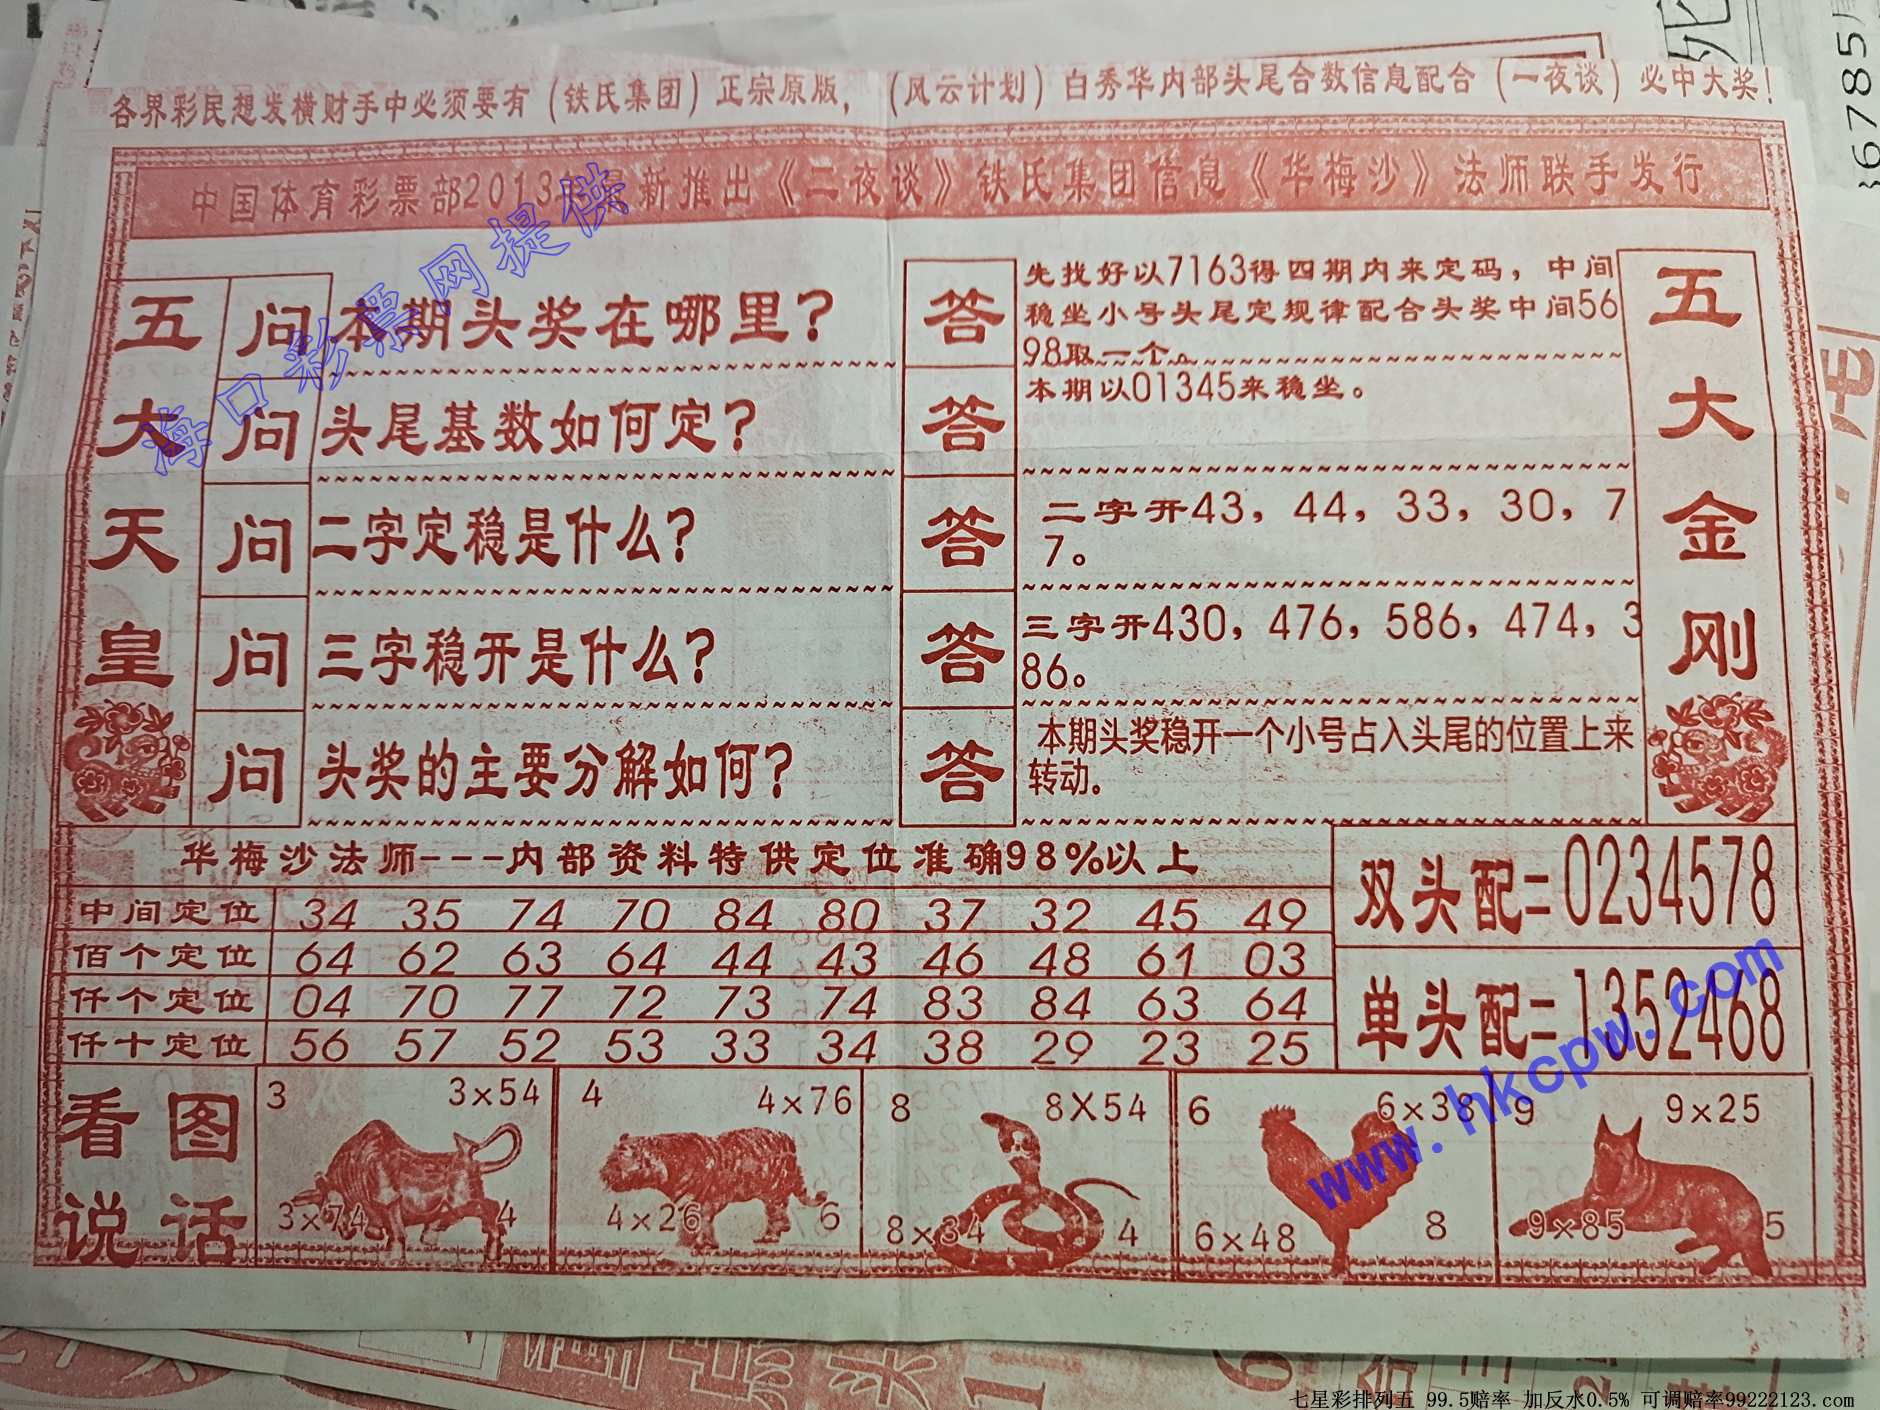 各界彩民想发横财手中必须要有（铁氏集团）正宗原版，（风云计划）白秀华内部头尾合数信息配合（一夜谈）必中大奖！
中国体育彩票部2013年最新推出《二夜谈》铁氏集团信息《华梅沙》法师联手发行
五大天皇
问 本期头奖在哪里？
答 先找好以7163得四期内来定码，中间
稳坐小号头尾定规律配合头奖中间56
98取一个。
问 头尾基数如何定？
答 本期以01345来稳坐。
问 二字定稳是什么？
答 二字开43，44，33，30，7
7。
问 三字稳开是什么？
答 三字开430，476，586，474，3
86。
问 头奖的主要分解如何？
答 本期头奖稳开一个小号占入头尾的位置上来
转动。
五大金刚
华梅沙法师---内部资料特供定位准确98%以上
中间定位 34 35 74 70 84 80 37 32 45 49
佰个定位 64 62 63 64 44 43 46 48 61 03
仟个定位 04 70 77 72 73 74 83 84 63 64
仟十定位 56 57 52 53 33 34 38 29 23 25
双头配=0234578
单头配=1352468
看图
说话
3 3×54
3×74 4
4 4×76
4×26 6
8 8X54
8×34 4
6 6×38
6×48 8
9 9×25
9×85 5
海口彩票网提供
www.hkcpw.com
七星彩排列五 99.5赔率 加反水0.5% 可调赔率99222123.com
6785